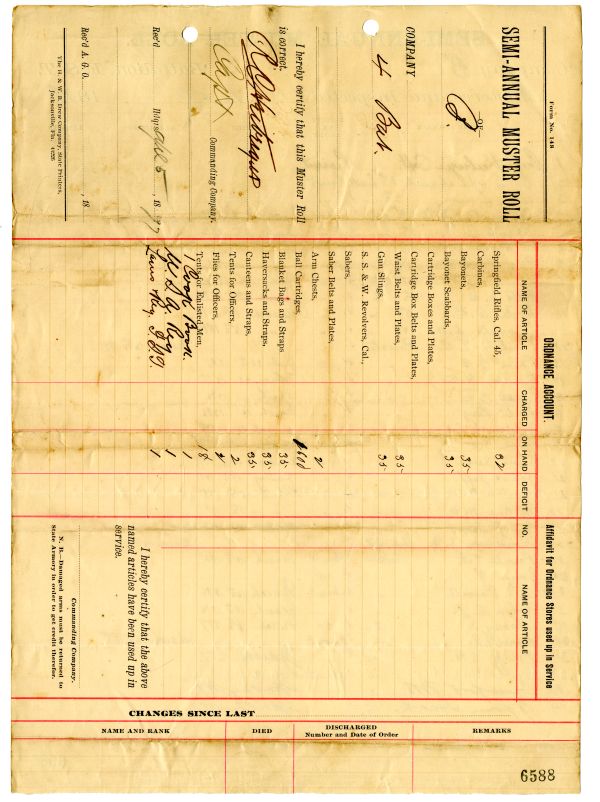 Form No. 148
SEMI-ANNUAL MUSTER ROLL
—OF—
COMPANY
4 Bat.
I hereby certify that this Muster Roll
is correct.
Capt
Commanding Company.
Hdqs.
5, 1897
Rec'd
Rec'd A. G. O. , 18
The H. & W. B. Drew Company, State Printers,
Jacksonville, Fla. 4235
ORDNANCE ACCOUNT.
NAME OF ARTICLE CHARGED ON HAND DEFICIT
Springfield Rifles, Cal. 45, 32
Carbines,
Bayonets, 35
Bayonet Scabbards, 35
Cartridge Boxes and Plates,
Cartridge Box Belts and Plates,
Waist Belts and Plates, 35
Gun Slings, 35
S. & W. Revolvers, Cal.,
Sabers,
Saber Belts and Plates,
Arm Chests, 2
Ball Cartridges, 1600
Blanket Bags and Straps 35
Haversacks and Straps, 35
Canteens and Straps, 35
Tents for Officers, 2
Flies for Officers, 2
Tents for Enlisted Men, 18
1 Cook Book. 1
U. S. A. Reg 1
Laws Reg F. S. T. 1
Affidavit for Ordnance Stores used up in Service
NO. NAME OF ARTICLE
I hereby certify that the above
named articles have been used up in
service.
Commanding Company.
N. B.—Damaged arms must be returned to
State Armory in order to get credit therefor.
CHANGES SINCE LAST
NAME AND RANK DIED DISCHARGED Number and Date of Order REMARKS
6588